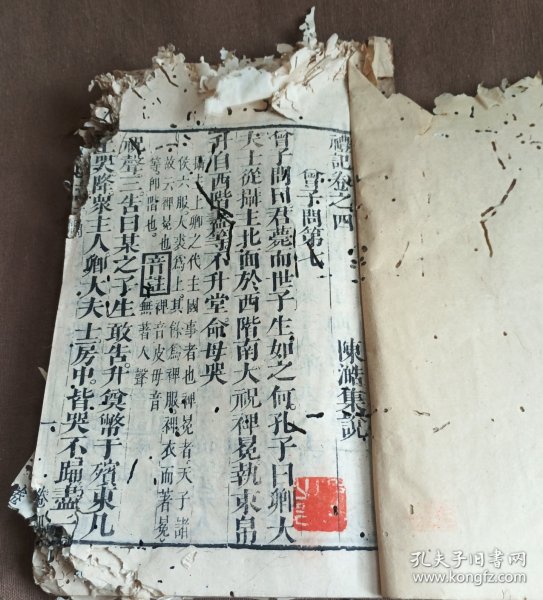 禮記卷之四
陳澔集說
曾子問第七
曾子問曰君薨而世子生如之何孔子曰卿大
夫士從攝主北面於西階南大祝裨冕執束帛
升自西階盡等不升堂命毋哭
攝主上卿之代主國事者也裨冕者天子諸
侯六服大裘為上其餘為裨服裨衣而著冕
故云裨冕也
等即階也
音註
裨音皮毋音
無著入聲
祝聲三告曰某之子生敢告升奠幣于殯東几
上哭降眾主人卿大夫士房中皆哭不踊盡
孔夫子旧书网
www.kongfz.com